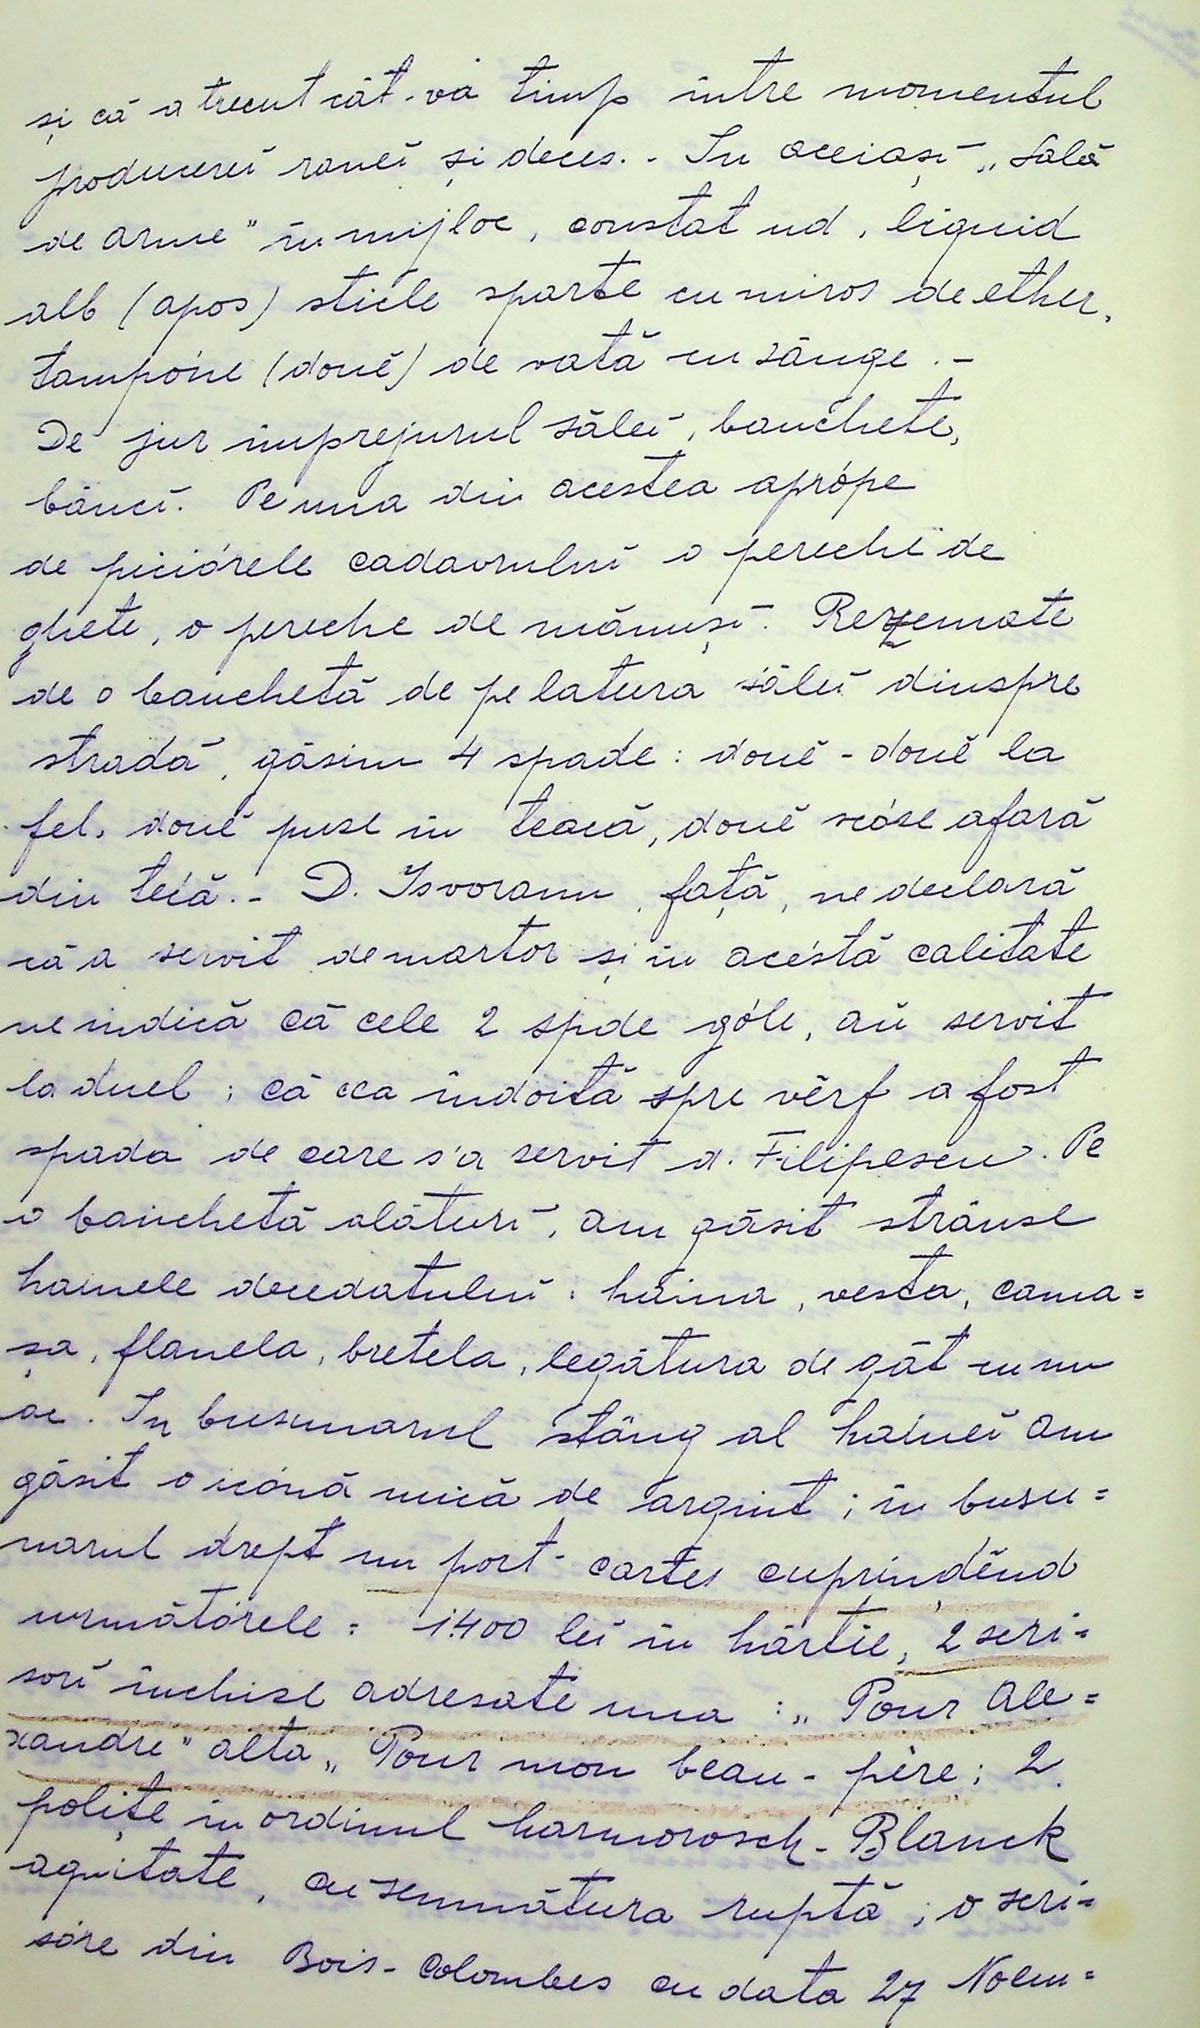 și că a trecut cât-va timp între momentul
producerei ranei și deces. - In aceiași „Sală
de arme" în mijloc, constat ud, liquid
alb (apos) sticle sparte cu miros de ether,
tampóne (douĕ) de vată cu sânge. -
De jur împrejurul sălei, banchete,
bănci. Pe una din acestea aprópe
de piciórele cadavrului o perechĭ de
ghete, o pereche de mănușĭ. Rezemate
de o banchetă de pe latura sălei dinspre
stradă, găsim 4 spade: douĕ - douĕ la
fel, douĕ puse în teacă, douĕ scóse afară
din técă. - D. Isvoranu, față, ne declară
că a servit de martor și în acéstă calitate
ne indică că cele 2 spde góle, aŭ servit
la duel; că cea îndoită spre vêrf a fost
spada de care s'a servit d. Filipescu. Pe
o banchetă alăturĭ, am găsit strânse
hainele decedatuluĭ: haina, vesta, cama=
șa, flanela, bretela, legătura de gât cu un
ac. In busunarul stâng al haineĭ am
găsit o icónă mică de argint; în busu=
narul drept un port-cartes cuprindĕnd
următórele: 1400 leĭ în hârtie, 2 scri=
sorĭ închise adresate una: „Pour Ale=
xandre" alta „Pour mon beau-père; 2
polițe în ordinul Harmorosch-Blanck
aquitate, cu semnătura ruptă; o scri=
sóre din Bois-Colombes cu data 27 Noem=